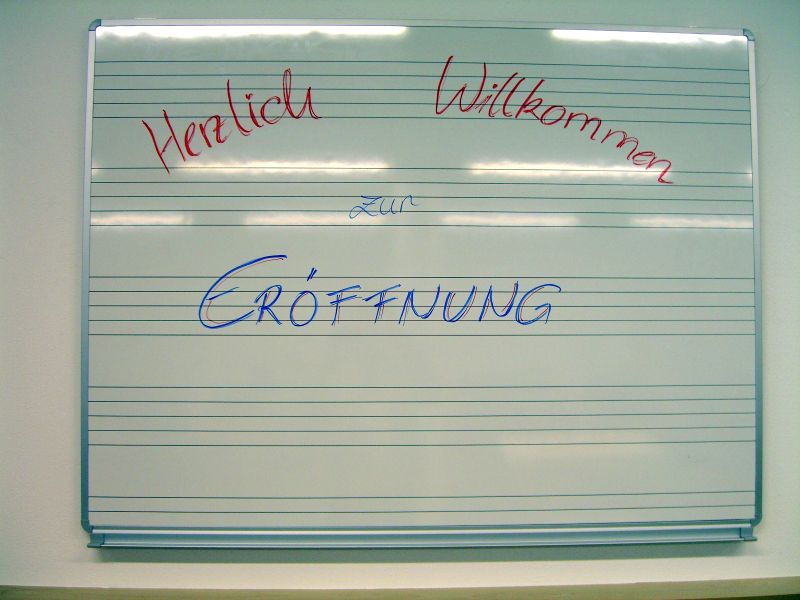 Herzlich Willkommen
zur
ERÖFFNUNG